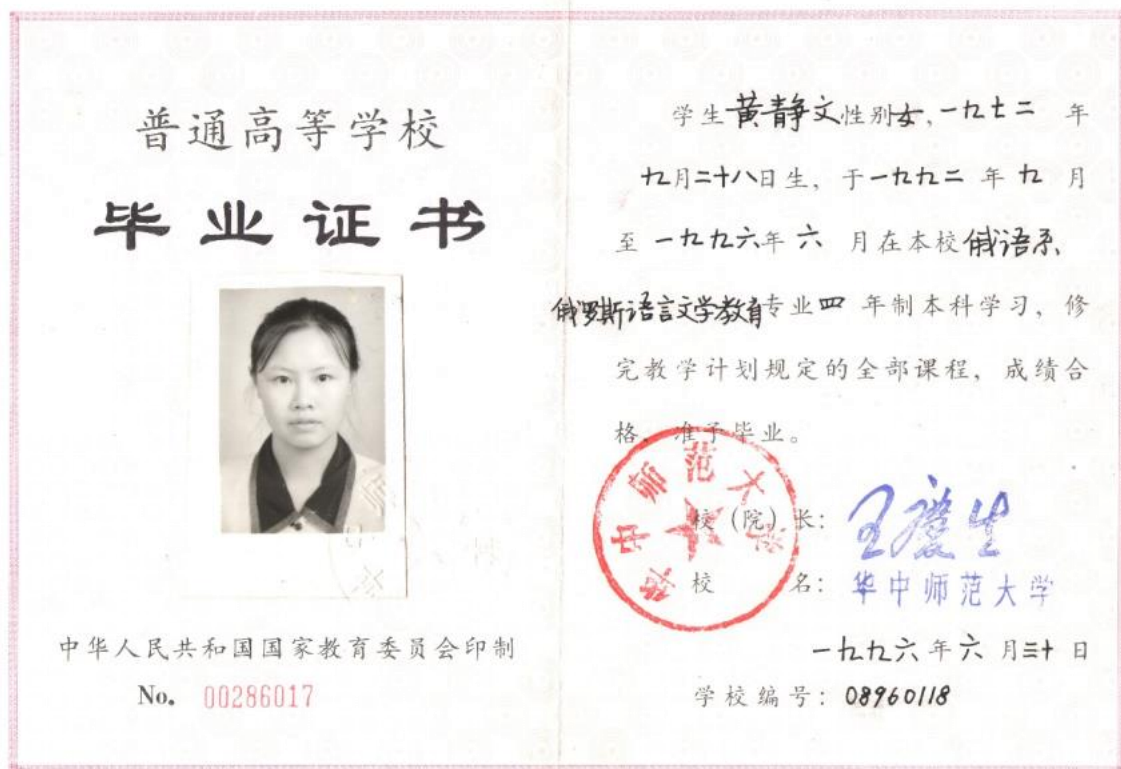 普通高等学校
毕业证书
中华人民共和国国家教育委员会印制
No. 00286017
学生黄静文性别女,一九七二 年
九月二十八日生, 于一九九二 年 九 月
至 一九九六年 六 月在本校俄语系
俄罗斯语言文学教育专业四 年制本科学习, 修
完教学计划规定的全部课程, 成绩合
格, 准予毕业。
校(院)长: 王庆生
校 名: 华中师范大学
华中师范大学
一九九六年六 月三十 日
学校编号: 08960118